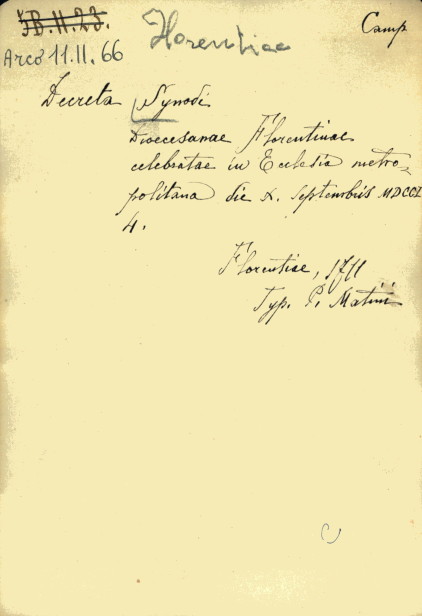 IB.11.23.
Camp
Florentiae
Arcó 11.11.66
Decreta Synodi
Dioecesanae Florentinae
celebratae in Ecclesia metro-
politana die X. Septembris MDCCX
4.
Florentiae, 1711
Typ. P. Matini